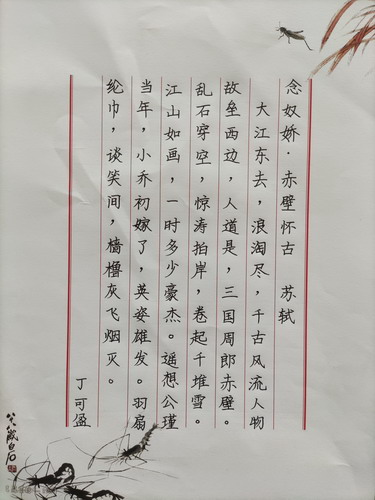 念奴娇·赤壁怀古 苏轼
大江东去，浪淘尽，千古风流人物
故垒西边，人道是，三国周郎赤壁。
乱石穿空，惊涛拍岸，卷起千堆雪。
江山如画，一时多少豪杰。遥想公瑾
当年，小乔初嫁了，英姿雄发。羽扇
纶巾，谈笑间，樯橹灰飞烟灭。
丁可盈
八八歲白石